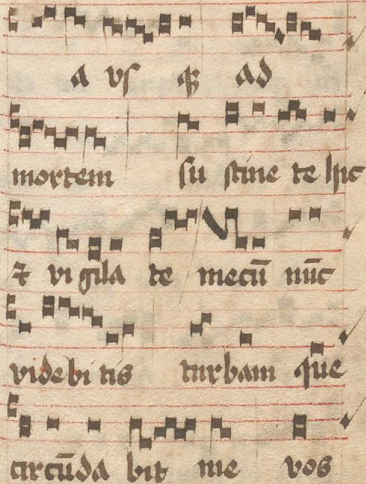 a vs qz ad
mortem su stine te hic
⁊ vi gila te mecū nūc
videbi tis turbam que
circūda bit me vos